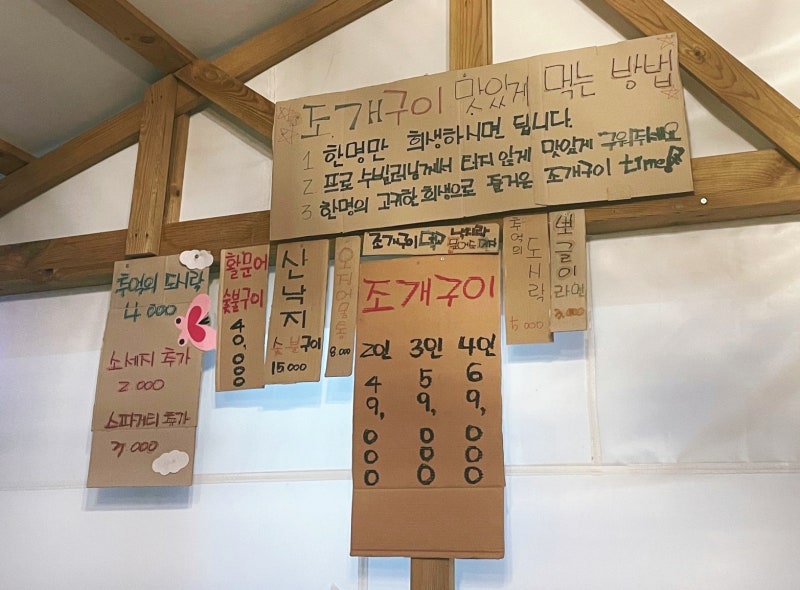 조개구이 맛있게 먹는 방법
1 한명만 희생하시면 됩니다.
2 프로 수발러님께서 타지 않게 맛있게 구워주세요
3 한명의 고귀한 희생으로 즐거운 조개구이
추억의 도시락
4000
소세지 추가
2.000
스파게티 추가
3.000
활문어
숯불구이
40,000
산낙지
숯불구이
15000
8.000
조개구이
조개구이
2인 3인 4인
49,000 59,000 69,000
추억의
도시락
4000
뽀글이
라면
3.000